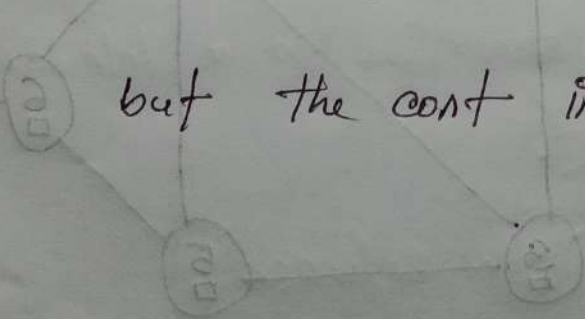 but the cost i